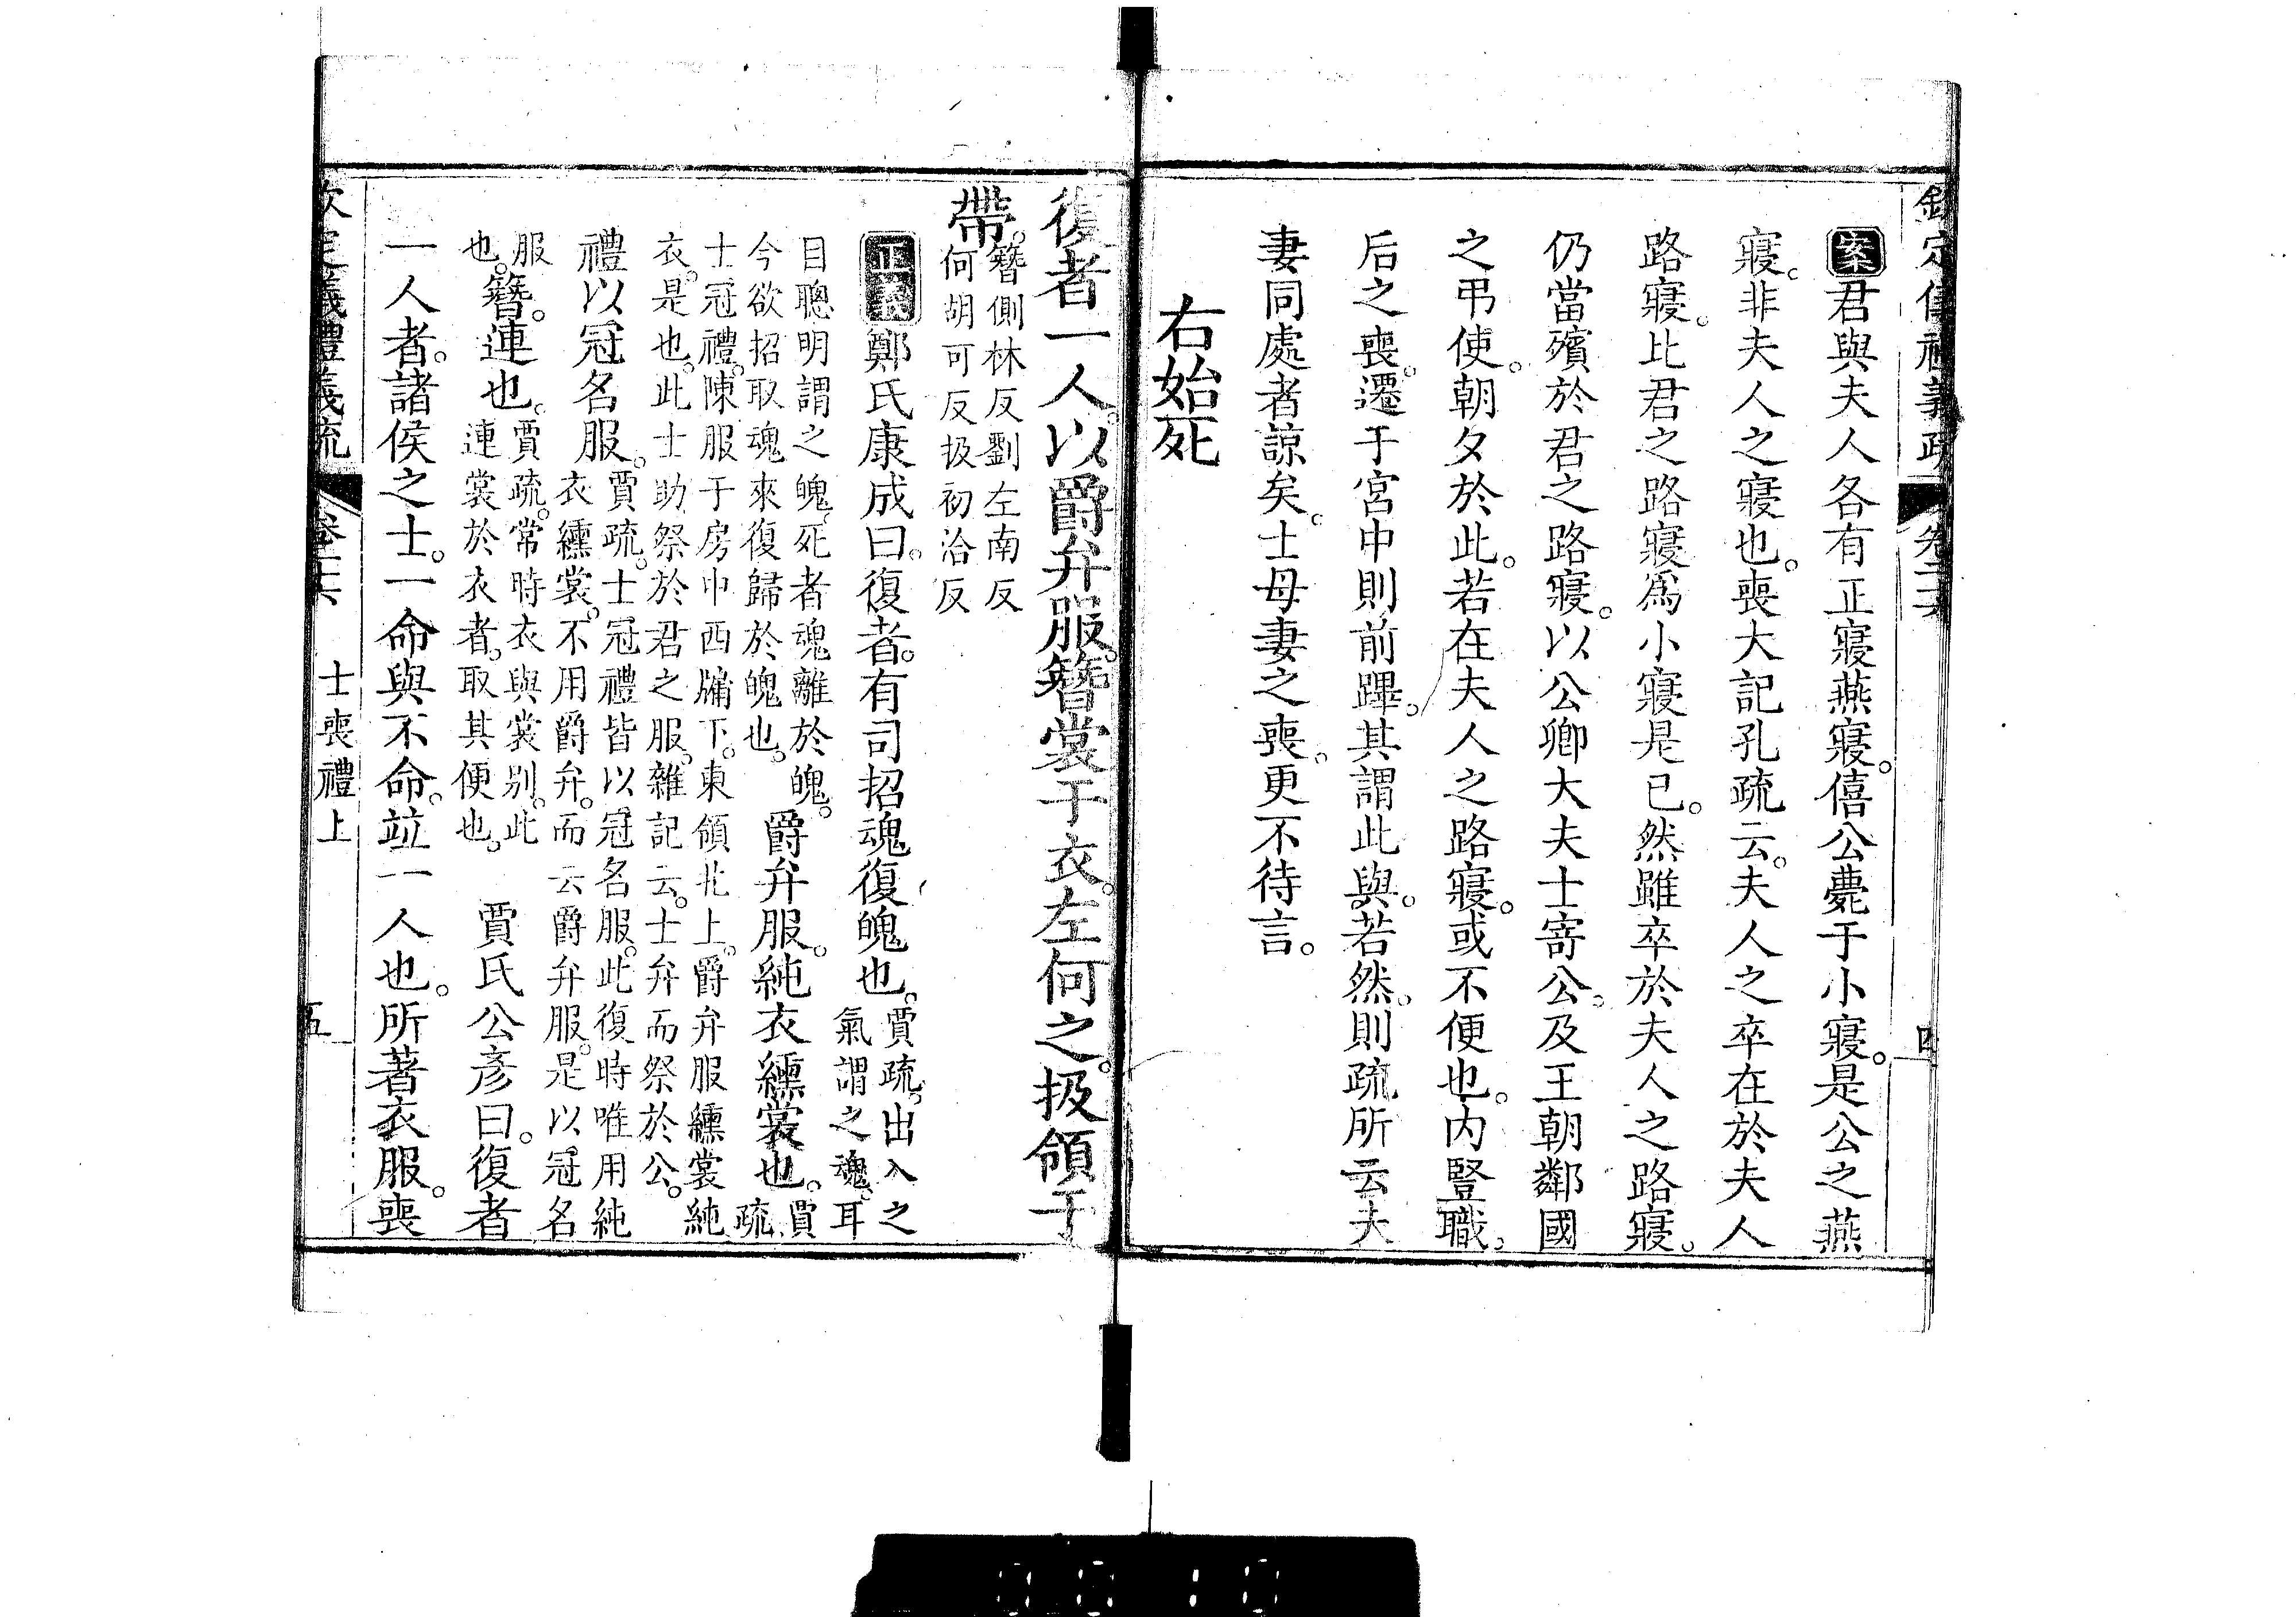 欽定儀禮義疏 卷二十六 四
案君與夫人各有正寢燕寢。僖公薨于小寢。是公之燕
寢。非夫人之寢也。喪大記孔疏云。夫人之卒在於夫人
路寢。比君之路寢爲小寢是已。然雖卒於夫人之路寢。
仍當殯於君之路寢。以公卿大夫士寄公。及王朝鄰國
之弔使。朝夕於此。若在夫人之路寢。或不便也。内豎職。
后之喪。遷于宮中則前蹕。其謂此與。若然。則疏所云夫
妻同處者諒矣。士母妻之喪。更不待言。
右始死
復者一人。以爵弁服。簪裳于衣。左何之。扱領于
帶。簪側林反劉左南反
何胡可反扱初洽反
正義鄭氏康成曰。復者。有司招魂復魄也。賈疏。出入之
氣謂之魂。耳
目聰明謂之魄。死者魂離於魄。
今欲招取魂來復歸於魄也。爵弁服。純衣纁裳也。賈
疏
士冠禮。陳服于房中西牖下。東領北上。爵弁服纁裳純
衣。是也。此士助祭於君之服。雜記云。士弁而祭於公。
禮以冠名服。賈疏。士冠禮皆以冠名服。此復時唯用純
衣纁裳。不用爵弁。而云爵弁服。是以冠名
服
也。簪。連也。賈疏。常時衣與裳别。此
連裳於衣者。取其便也。賈氏公彦曰。復者
一人者。諸侯之士。一命與不命。竝一人也。所著衣服。喪
欽定儀禮義疏 卷二十六 士喪禮上 五
0010